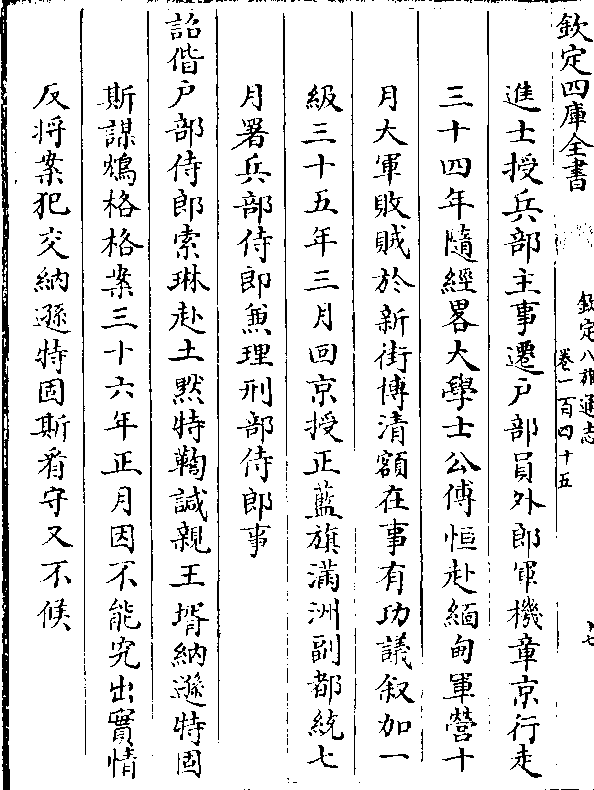 欽定四庫全書
欽定八旗通志
卷一百四十五
七
進士授兵部主事遷户部員外郎軍機章京行走
三十四年隨經畧大學士公傅恒赴緬甸軍營十
月大軍敗賊於新街博清額在事有功議叙加一
級三十五年三月回京授正藍旗滿洲副都統七
月署兵部侍郎兼理刑部侍郎事
詔偕户部侍郎索琳赴土黙特鞫諴親王壻納遜特固
斯謀鴆格格案三十六年正月因不能究出實情
反將案犯交納遜特固斯看守又不候